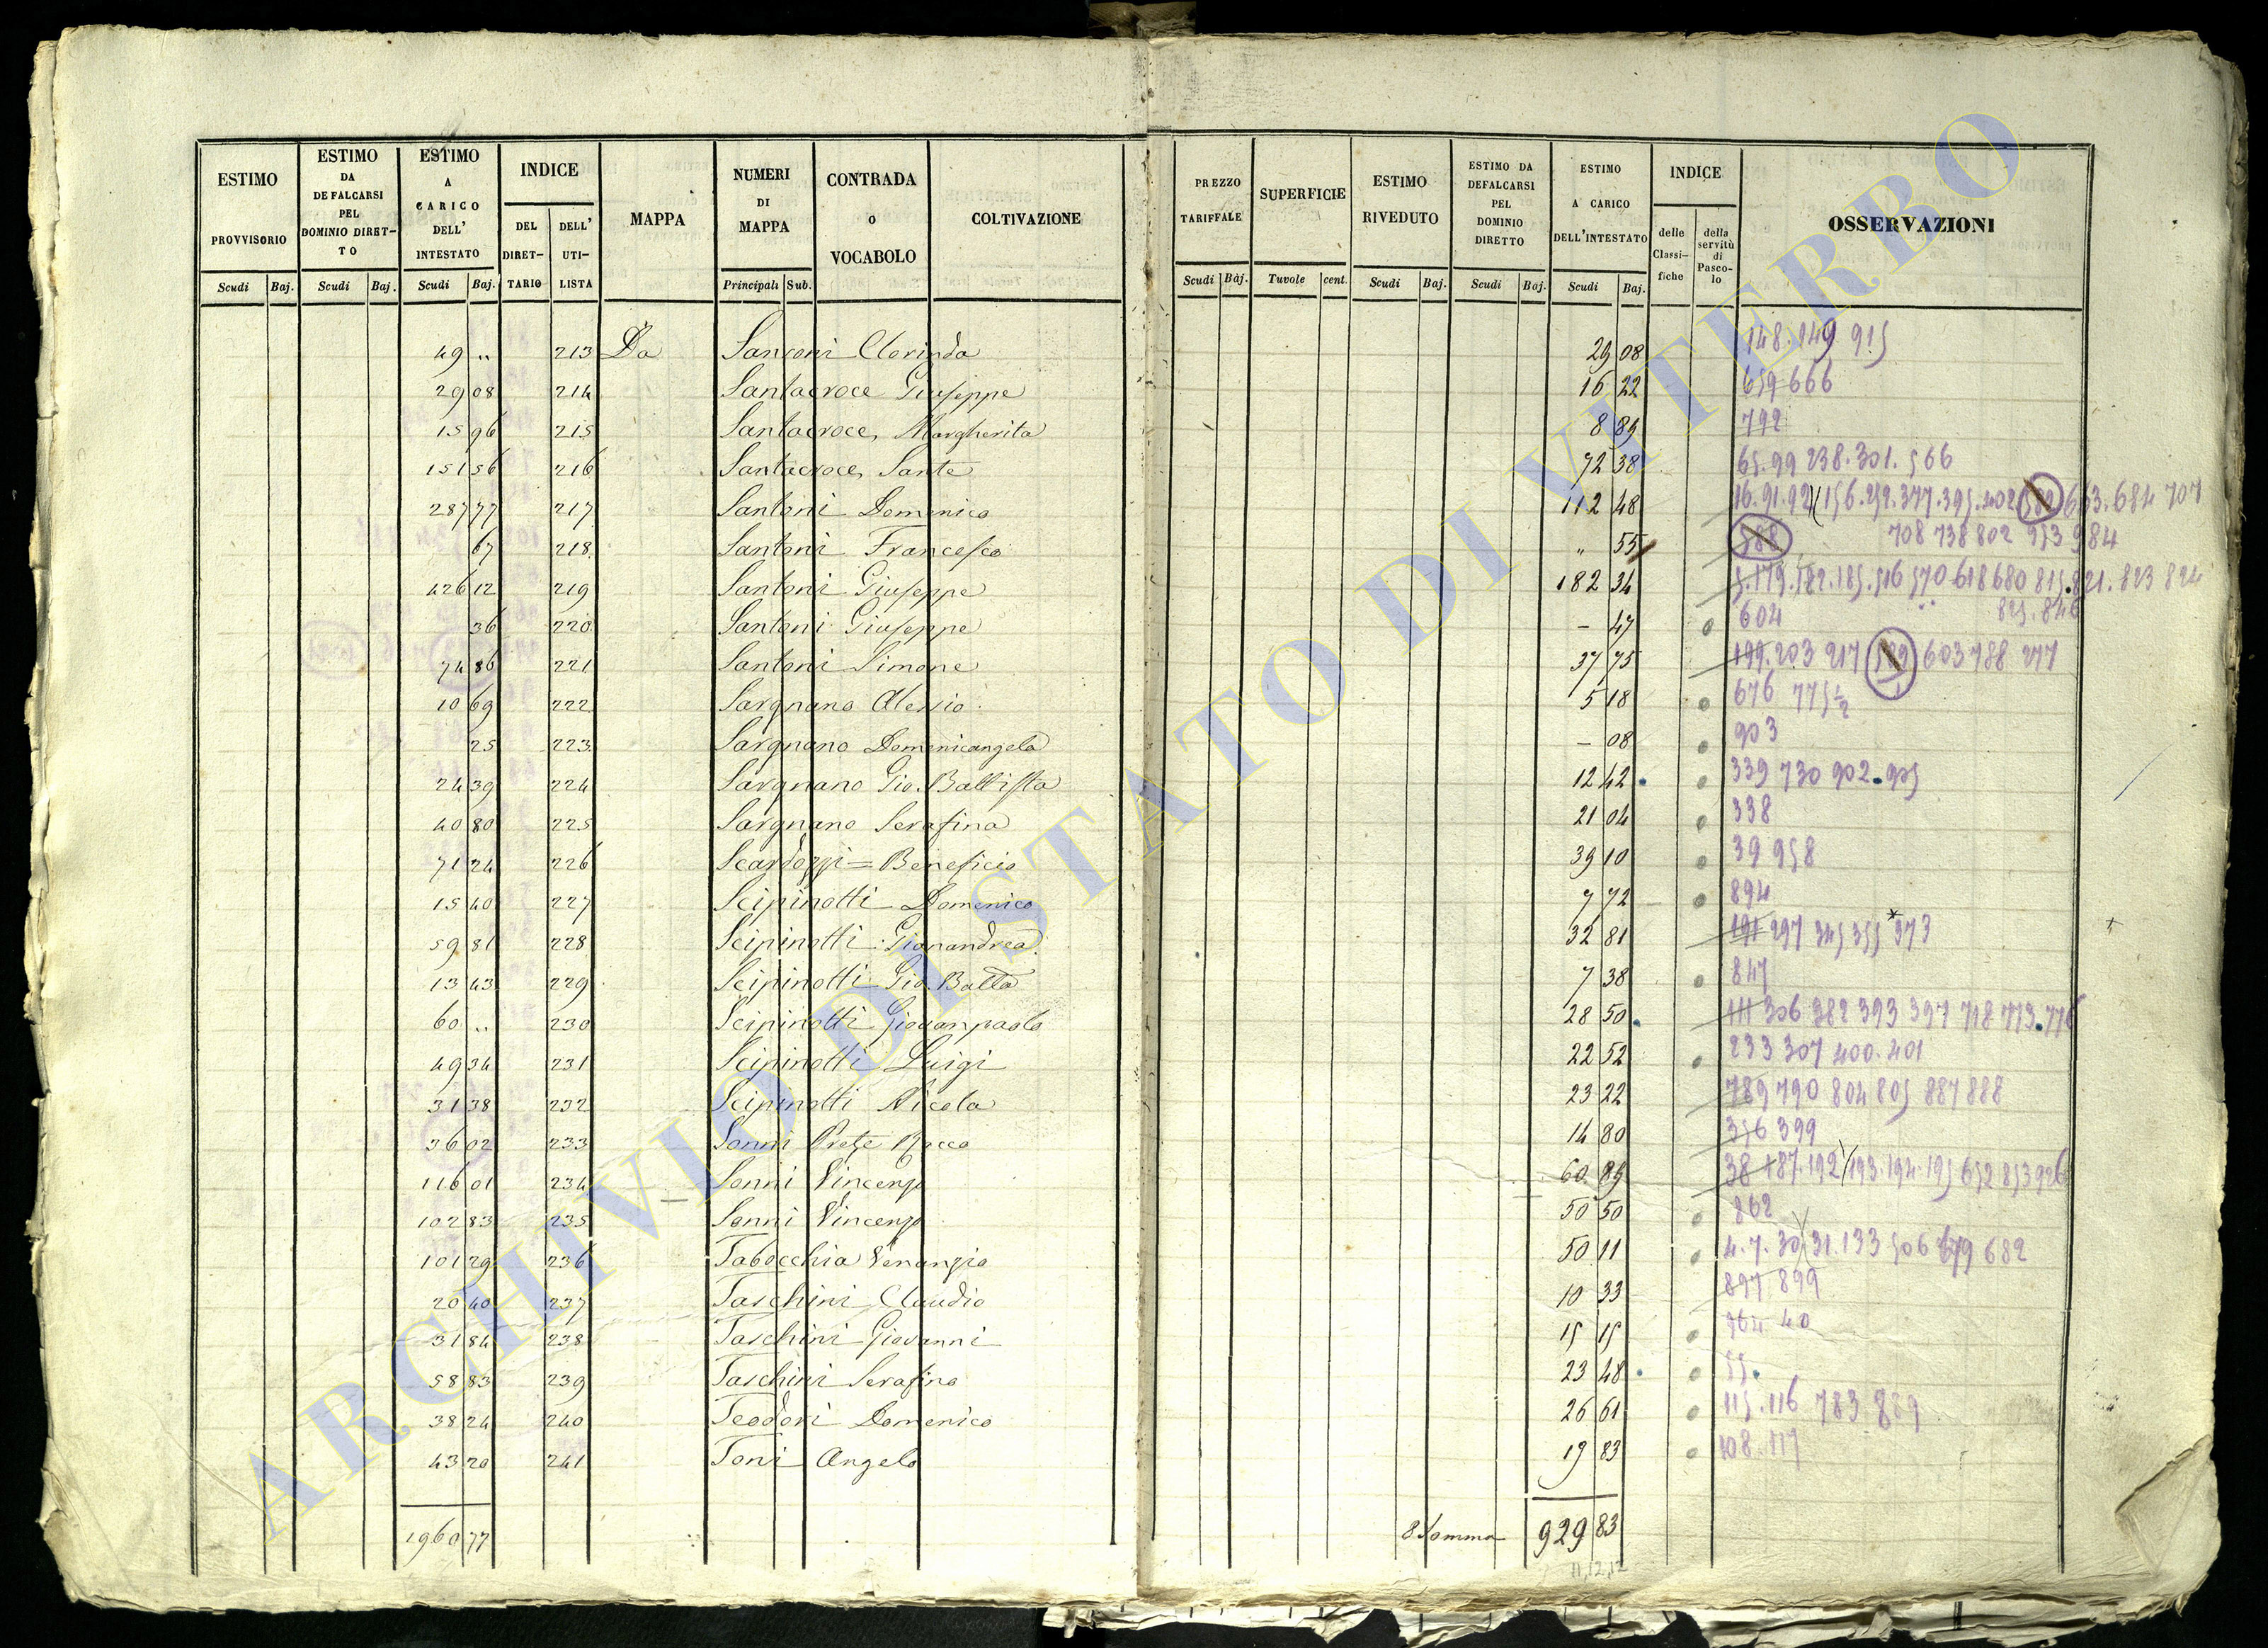 ESTIMO PROVVISORIO
ESTIMO DA DEFALCARSI PEL DOMINIO DIRETTO
ESTIMO A CARICO DELL' INTESTATO
INDICE
DEL DIRETTARIO
DELL' UTILISTA
MAPPA
NUMERI DI MAPPA
CONTRADA o VOCABOLO
COLTIVAZIONE
PREZZO TARIFFALE
SUPERFICIE
ESTIMO RIVEDUTO
ESTIMO DA DEFALCARSI PEL DOMINIO DIRETTO
ESTIMO A CARICO DELL'INTESTATO
INDICE
delle Classifiche
della servitù di Pascolo
OSSERVAZIONI
Scudi Baj. Scudi Baj. Scudi Baj. Principali Sub. Scudi Baj. Tavole cent. Scudi Baj. Scudi Baj. Scudi Baj.
49 .. 213 Da Sansoni Clorinda 29 08 148. 149 915
29 08 214 Santacroce Giuseppe 16 22 659 666
15 96 215 Santacroce Margherita 8 89 792
151 56 216 Santacroce Sante 72 38 65. 99 238. 301. 566
287 77 217 Santoni Domenico 112 48 16. 91. 92 156. 252. 377. 395. 402 684 707
67 218 Santoni Francesco .. 55 588 708 738 802 953 984
426 12 219 Santoni Giuseppe 182 34 5. 179. 182. 185. 516 570 618 680 815. 821. 823 824
36 220 Santoni Giuseppe – 47 604 825. 846
74 86 221 Santoni Simone 37 75 199. 203 217 603 788 277
10 69 222 Sargnano Alessio 5 18 676 775 1/2
25 223 Sargnano Domenicangelo – 08 903
24 39 224 Sargnano Gio. Battista 12 42 339 730 902. 905
40 80 225 Sargnano Serafina 21 04 338
71 24 226 Scardozzi = Beneficio 39 10 39 958
15 40 227 Scipinotti Domenico 7 72 894
59 81 228 Scipinotti Gionandrea 32 81 191 297 345 355 * 373
13 43 229 Scipinotti Gio Batta 7 38 847
60 .. 230 Scipinotti Giovanpaolo 28 50 111 306 382 393 397 718 773. 776
49 34 231 Scipinotti Luigi 22 52 233 307 400. 401
31 38 232 Scipinotti Nicola 23 22 789 790 804 805 887 888
36 02 233 Sonni Prete Rocco 14 80 356 399
116 01 234 Sonni Vincenzo 60 89 38 187. 192 193. 194. 195 652 853 926
102 83 235 Sonni Vincenzo 50 50 862
101 29 236 Tabocchia Venanzio 50 11 4. 7. 30 31. 133 506 679 682
20 40 237 Taschini Claudio 10 33 897 899
31 84 238 Taschini Giovanni 15 15 764 40
58 83 239 Taschini Serafino 23 48 55.
38 24 240 Teodori Domenico 26 61 115. 116 783 889
43 20 241 Toni Angelo 19 83 108. 117
1960 77 8 Somma 929 83
11,12,12
ARCHIVIO DI STATO DI VITERBO